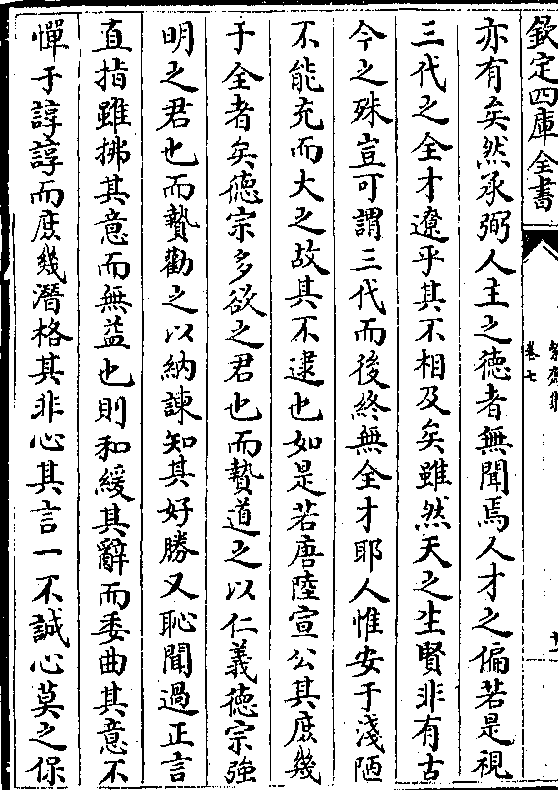 欽定四庫全書
卷七
亦有矣然承弼人主之德者無聞焉人才之偏若是視
三代之全才遼乎其不相及矣雖然天之生賢非有古
今之殊豈可謂三代而後終無全才耶人惟安于淺陋
不能充而大之故其不逮也如是若唐陸宣公其庶幾
于全者矣德宗多欲之君也而贄道之以仁義德宗強
明之君也而贄勸之以納諫知其好勝又恥聞過正言
直指雖拂其意而無益也則和緩其辭而委曲其意不
憚于諄諄而庶幾潛格其非心其言一不誠心莫之保